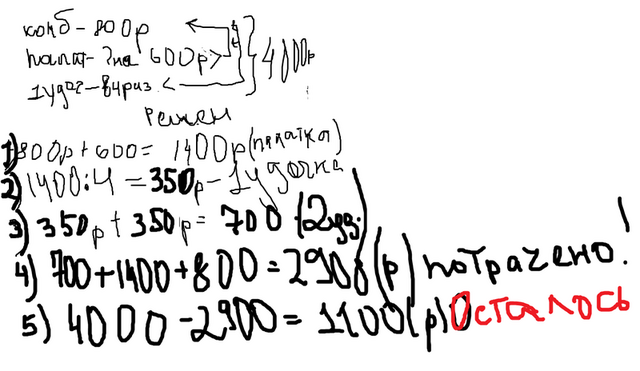 комб-800р
палат-?на 600р>
1удоч-в4раз <
4000р
Решен
1) 800р+600= 1400р(палатка)
2) 1400:4 = 350р-1удочка
3) 350р+350р= 700 (2уд)
4) 700+1400+800=2900(р) потрачено!
5) 4000-2900= 1100(р) Осталось